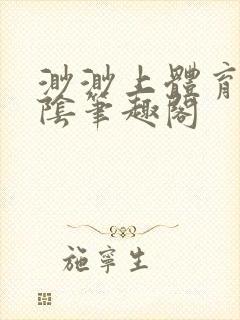 渺渺上體育
陰筆趣閣
施寧生